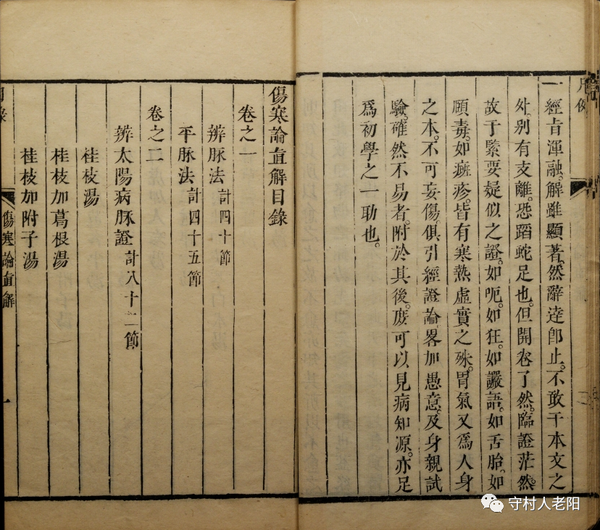 凡例
一經旨渾融。解雖顯著。然辭達卽止。不敢于本文之
处别有支離。恐蹈蛇足也。但開卷了然。臨證茫然。
故于緊要疑似之證。如呃。如狂。如讝語。如舌胎。如
頤毒。如癍疹。皆有寒熱虛實之殊。胃氣又爲人身
之本。不可妄傷。俱引經證論。畧加愚意。及身親試
驗。確然不易者。附於其後。庶可以見病知源。亦足
爲初學之一助也。
傷寒論直解目錄
卷之一
辨脉法 計四十節
平脉法 計四十五節
卷之二
辨太陽病脉證 計八十二節
桂枝湯
桂枝加葛根湯
桂枝加附子湯
傷寒論直解
一
守村人老阳